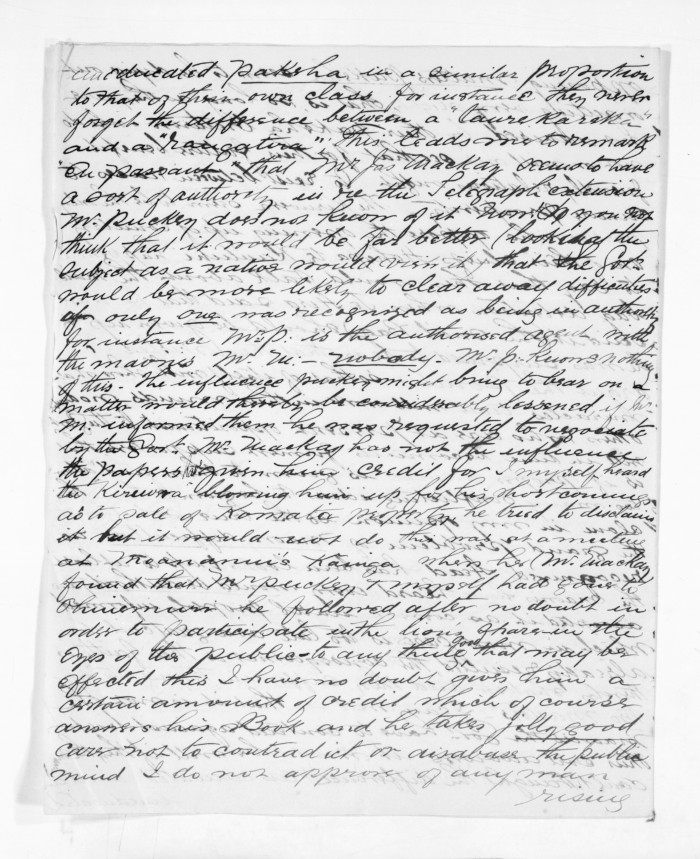 educated pakeha in a similar proportion
to that of their own class for instance they never
forget the difference between a "taurekareka"
and a "rangatira" this leads me to remark
"en passant" that Mr Jas Mackay seems to have
a sort of authority in re the Telegraph extension
Mr Puckey does not know of it now do you not
think that it would be far better (looking at the
subject as a native would view it) that the Govt.
would be more likely to clear away difficulties
if only one was recognized as being in authority
for instance Mr P. is the authorised agent with
the maoris Mr M. – nobody. Mr P. knows nothing
of this. The influence Puckey might bring to bear on a
matter would thereby be considerably lessened if Mr
M. informed them he was requested to negociate
by the Govt. Mr Mackay has not the influence
the papers given him credit for I myself heard
the Kirewera blowing him up for his shortcomings
as to sale of property he tried to disclaim
it but it would not do this was at a meeting
at Kainga when he Mr. Mackay
found that Mr Puckey & myself had gone to
Ohinemuri he followed after no doubt in
order to participate in the lions share in the
Eyes of the public to any thing good that may be
effected this I have no doubt gives him a
certain amount of credit which of course
answers his Book and he takes jolly good
care not to contradict or disabuse the public
mind I do not approve of any man
rising